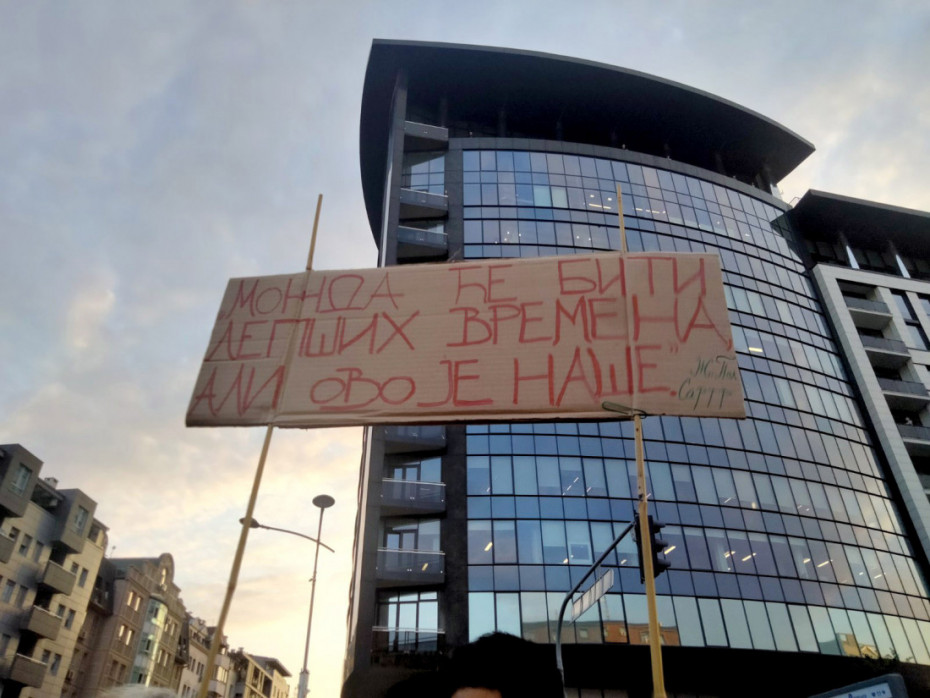 МОЖДА ЋЕ БИТИ
ЛЕПШИХ ВРЕМЕНА,
АЛИ ОВО ЈЕ НАШЕ."
Ж. Пол
Сартр